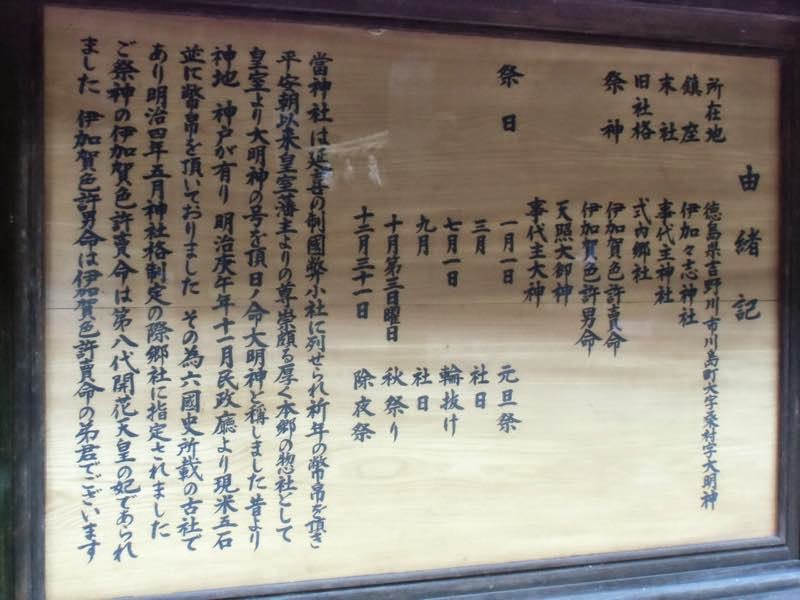 由緒記
所在地 徳島県吉野川市川島町大字桑村字大明神
鎮座 伊加々志神社
末社 事代主神社
旧社格 式内郷社
祭神 伊加賀色許賣命
伊加賀色許男命
天照大御神
事代主大神
祭日 一月一日 元旦祭
三月 社日
七月一日 輪抜け
九月 社日
十月第三日曜日 秋祭り
十二月三十一日 除夜祭
當神社は延喜の制國弊小社に列せられ祈年の幣帛を頂き
平安朝以来皇室藩主よりの尊崇頗る厚く本郷の惣社として
皇室より大明神の号を頂日ノ命大明神と称しました昔より
神地 神戸が有り 明治庚午年十一月民政廳より現米五石
並に幣帛を頂いておりました その為六國史所載の古社で
あり明治四年五月神社格制定の際郷社に指定されました
ご祭神の伊加賀色許賣命は第八代開花天皇の妃であられ
ました 伊加賀色許男命は伊加賀色許賣命の弟君でございます